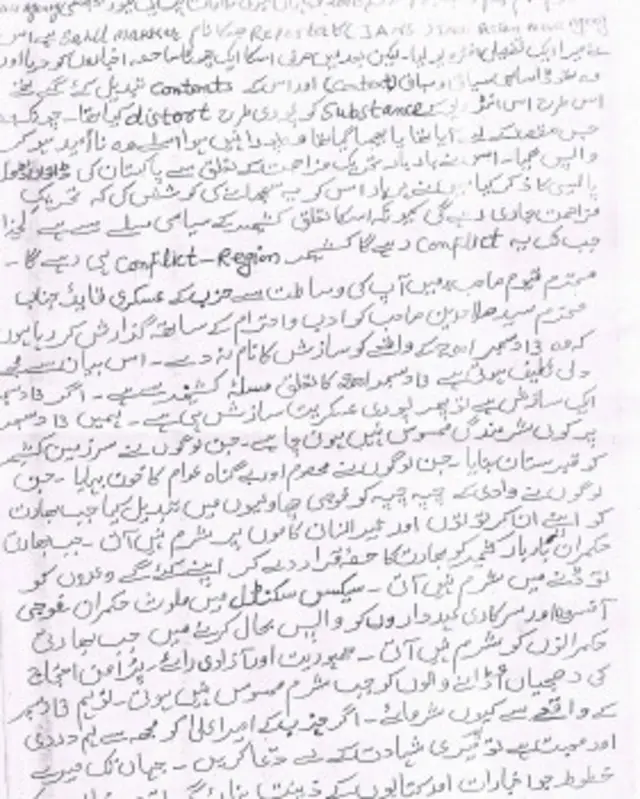 Sahil Maqbool جسکا نام Reporter کا (IANS) Indo Asian News Agency
نے میرا ایک تفصیلی انٹرویو لیا۔ لیکن بعد میں صرف اسکا ایک چھوٹا سا حصہ اخباروں کو دیا اور
وہ بھی اسکا سیاق و سباق (context) اور اس کے contents تبدیل کئے گئے تھے
اس طرح اس انٹرویو کے Substance کو پوری طرح distort کیا گیا تھا۔ چونکہ وہ
جس مقصد کے لئے آیا تھا یا بھیجا گیا تھا وہ پورا نہیں ہوا اسلئے وہ نا امید ہو کر
واپس گیا۔ اس نے بار بار تحریک مزاحمت کے تعلق سے پاکستان کی
پالیسی کا ذکر کیا میں نے ہر بار اس کو یہ سمجھانے کی کوشش کی کہ تحریک
مزاحمت جاری رہے گی کیونکہ اسکا تعلق کشمیر کے سیاسی مسئلے سے ہے لہٰذا
جب تک یہ Conflict رہے گا کشمیر Conflict-Region ہی رہے گا۔
محترم قیوم صاحب، میں آپ کی وساطت سے حزب کے عسکری قائد جناب
محترم سید صلاح الدین صاحب کو ادب و احترام کے ساتھ گذارش کر رہا ہوں
کہ وہ 13 دسمبر 2001 کے واقعے کو سازش کا نام نہ دے۔ اس بیان سے مجھے
دلی تکلیف ہوئی ہے 13 دسمبر 2001 کا تعلق مسئلہ کشمیر سے ہے۔ اگر 13 دسمبر
ایک سازش ہے تو پھر پوری عسکریت سازش ہی ہے۔ ہمیں 13 دسمبر
پر کوئی شرمندگی محسوس نہیں ہونی چاہیے۔ جن لوگوں نے سرزمین کشمیر
کو قبرستان بنایا۔ جن لوگوں نے معصوم اور بے گناہ عوام کا خون بہایا۔ جن
لوگوں نے وادی کے چپہ چپہ کو فوجی چھاونیوں میں تبدیل کیا جب بھارت
کو اپنے ان کرتوتوں اور غیر انسانی کاموں پر شرم نہیں آتی۔ جب بھارت
حکمران بار بار کشمیر کو بھارت کا حصہ قرار دے کر اپنے کئے گئے وعدوں کو
توڑنے میں شرم نہیں آتی۔ سیکس سکنڈل میں ملوث حکمران فوجی
آفسروں اور سرکاری عہدداروں کو واپس بحال کرنے میں جب بھارتی
حکمرانوں کو شرم نہیں آتی۔ جمہوریت اور آزادی رائے۔ پُرامن احتجاج
کی دھجیاں اُڑانے والوں کو جب شرم محسوس نہیں ہوتی۔ تو ہم 13 دسمبر
کے واقعے سے کیوں شرمائے۔ اگر حزب کے امیر اعلیٰ کو مجھ سے ہمدردی
اور محبت ہے تو میری شہادت کے لئے دعا کریں۔ جہاں تک میرے
خطوط جو اخبارات اور کتابوں کے